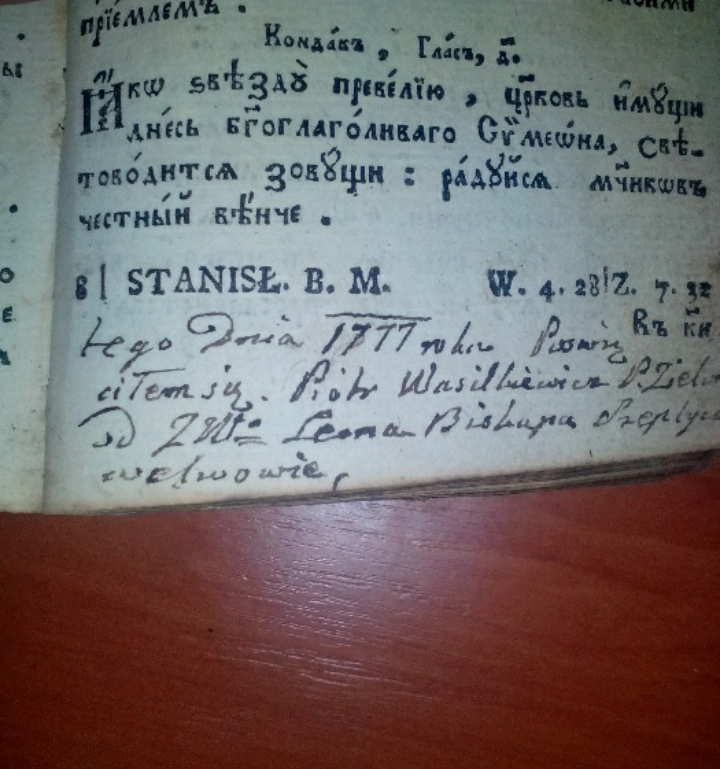 прїе́млемъ .
Конда́къ , Гла́съ , д҃.
Ꙗ҆́кѡ ѕвѣздꙋ̀ преве́лїю , цр҃ковь и҆мꙋ́щи
дне́сь бг҃оглаго́ливаго Сѷмеѡ́на , свѣ-
тово́дитсѧ зовꙋ́щи : ра́дꙋйсѧ мч҃никѡвъ
честны́й вѣ́нче .
8 | STANISŁ. B. M. W. 4. 28|Z. 7. 32
Въ к҃и
tego Dnia 1777 roku Poswię
ciłem się. Piotr Wasilkiewicz P.
od Leona Biskupa Szeptyc
welwowie,